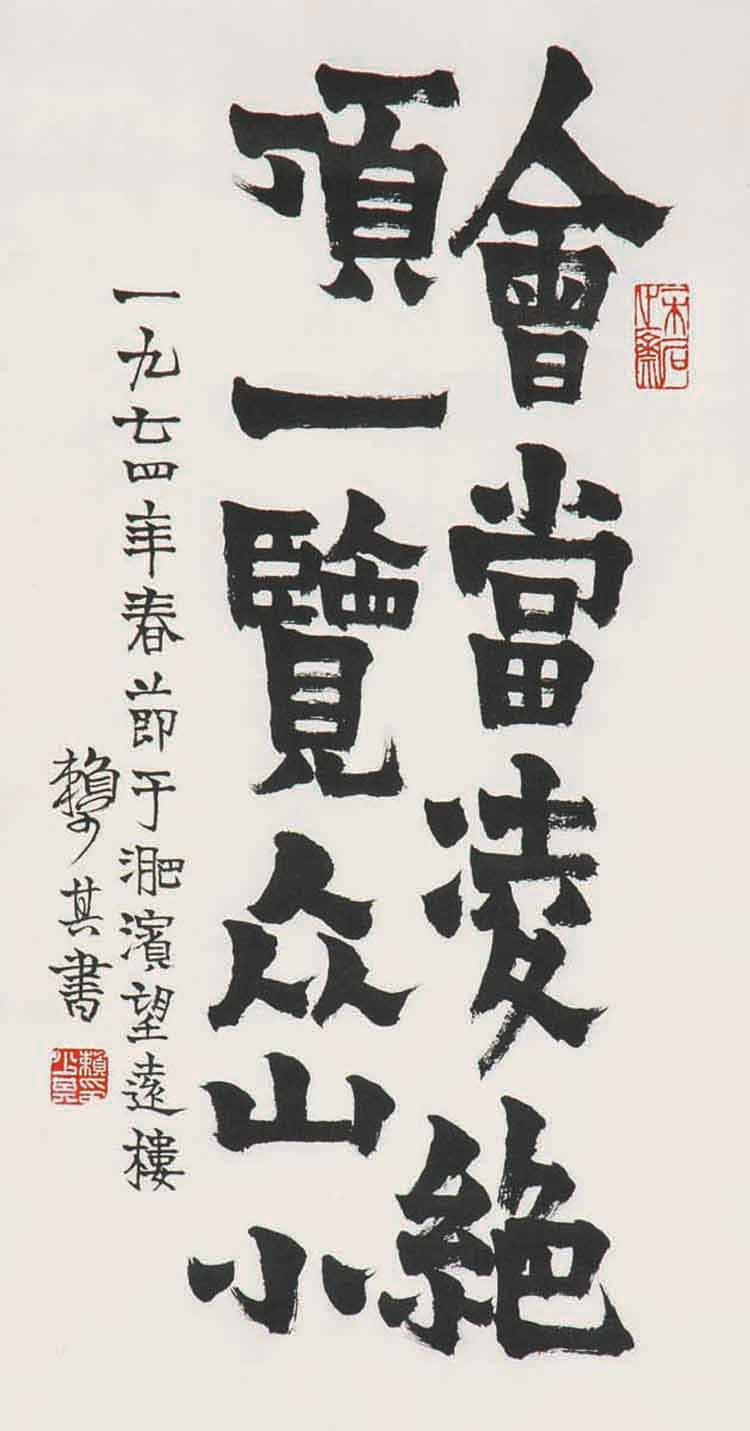 會當凌絕
頂一覽众山小
一九七四年春節于淝濱望遠樓
賴少其書
賴少其印